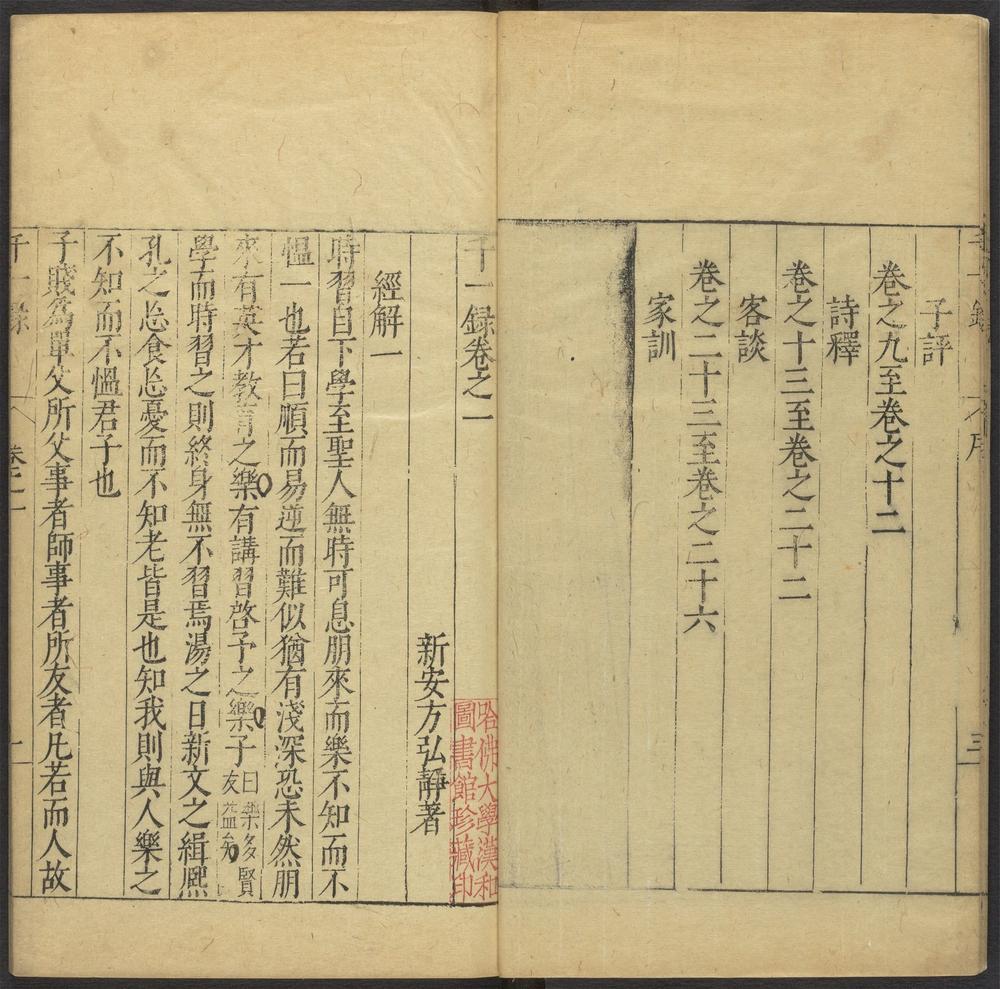 千一錄
序
三
子評
卷之九至卷之十二
詩釋
卷之十三至卷之二十二
客談
卷之二十三至卷之二十六
家訓
千一録卷之一
新安方弘靜著
哈佛大學漢和圖書館珍藏印
經解一
時習自下學至聖人無時可息朋來而樂不知而不
慍一也若曰順而易逆而難似猶有淺深恐未然朋
來有英才教育之樂有講習啓予之樂子曰樂多賢友益矣
學而時習之則終身無不習焉湯之日新文之緝熈
孔之忘食忘憂而不知老皆是也知我則與人樂之
不知而不慍君子也
子賤為單父所父事者師事者所友者凡若而人故
千一錄
卷之一
一